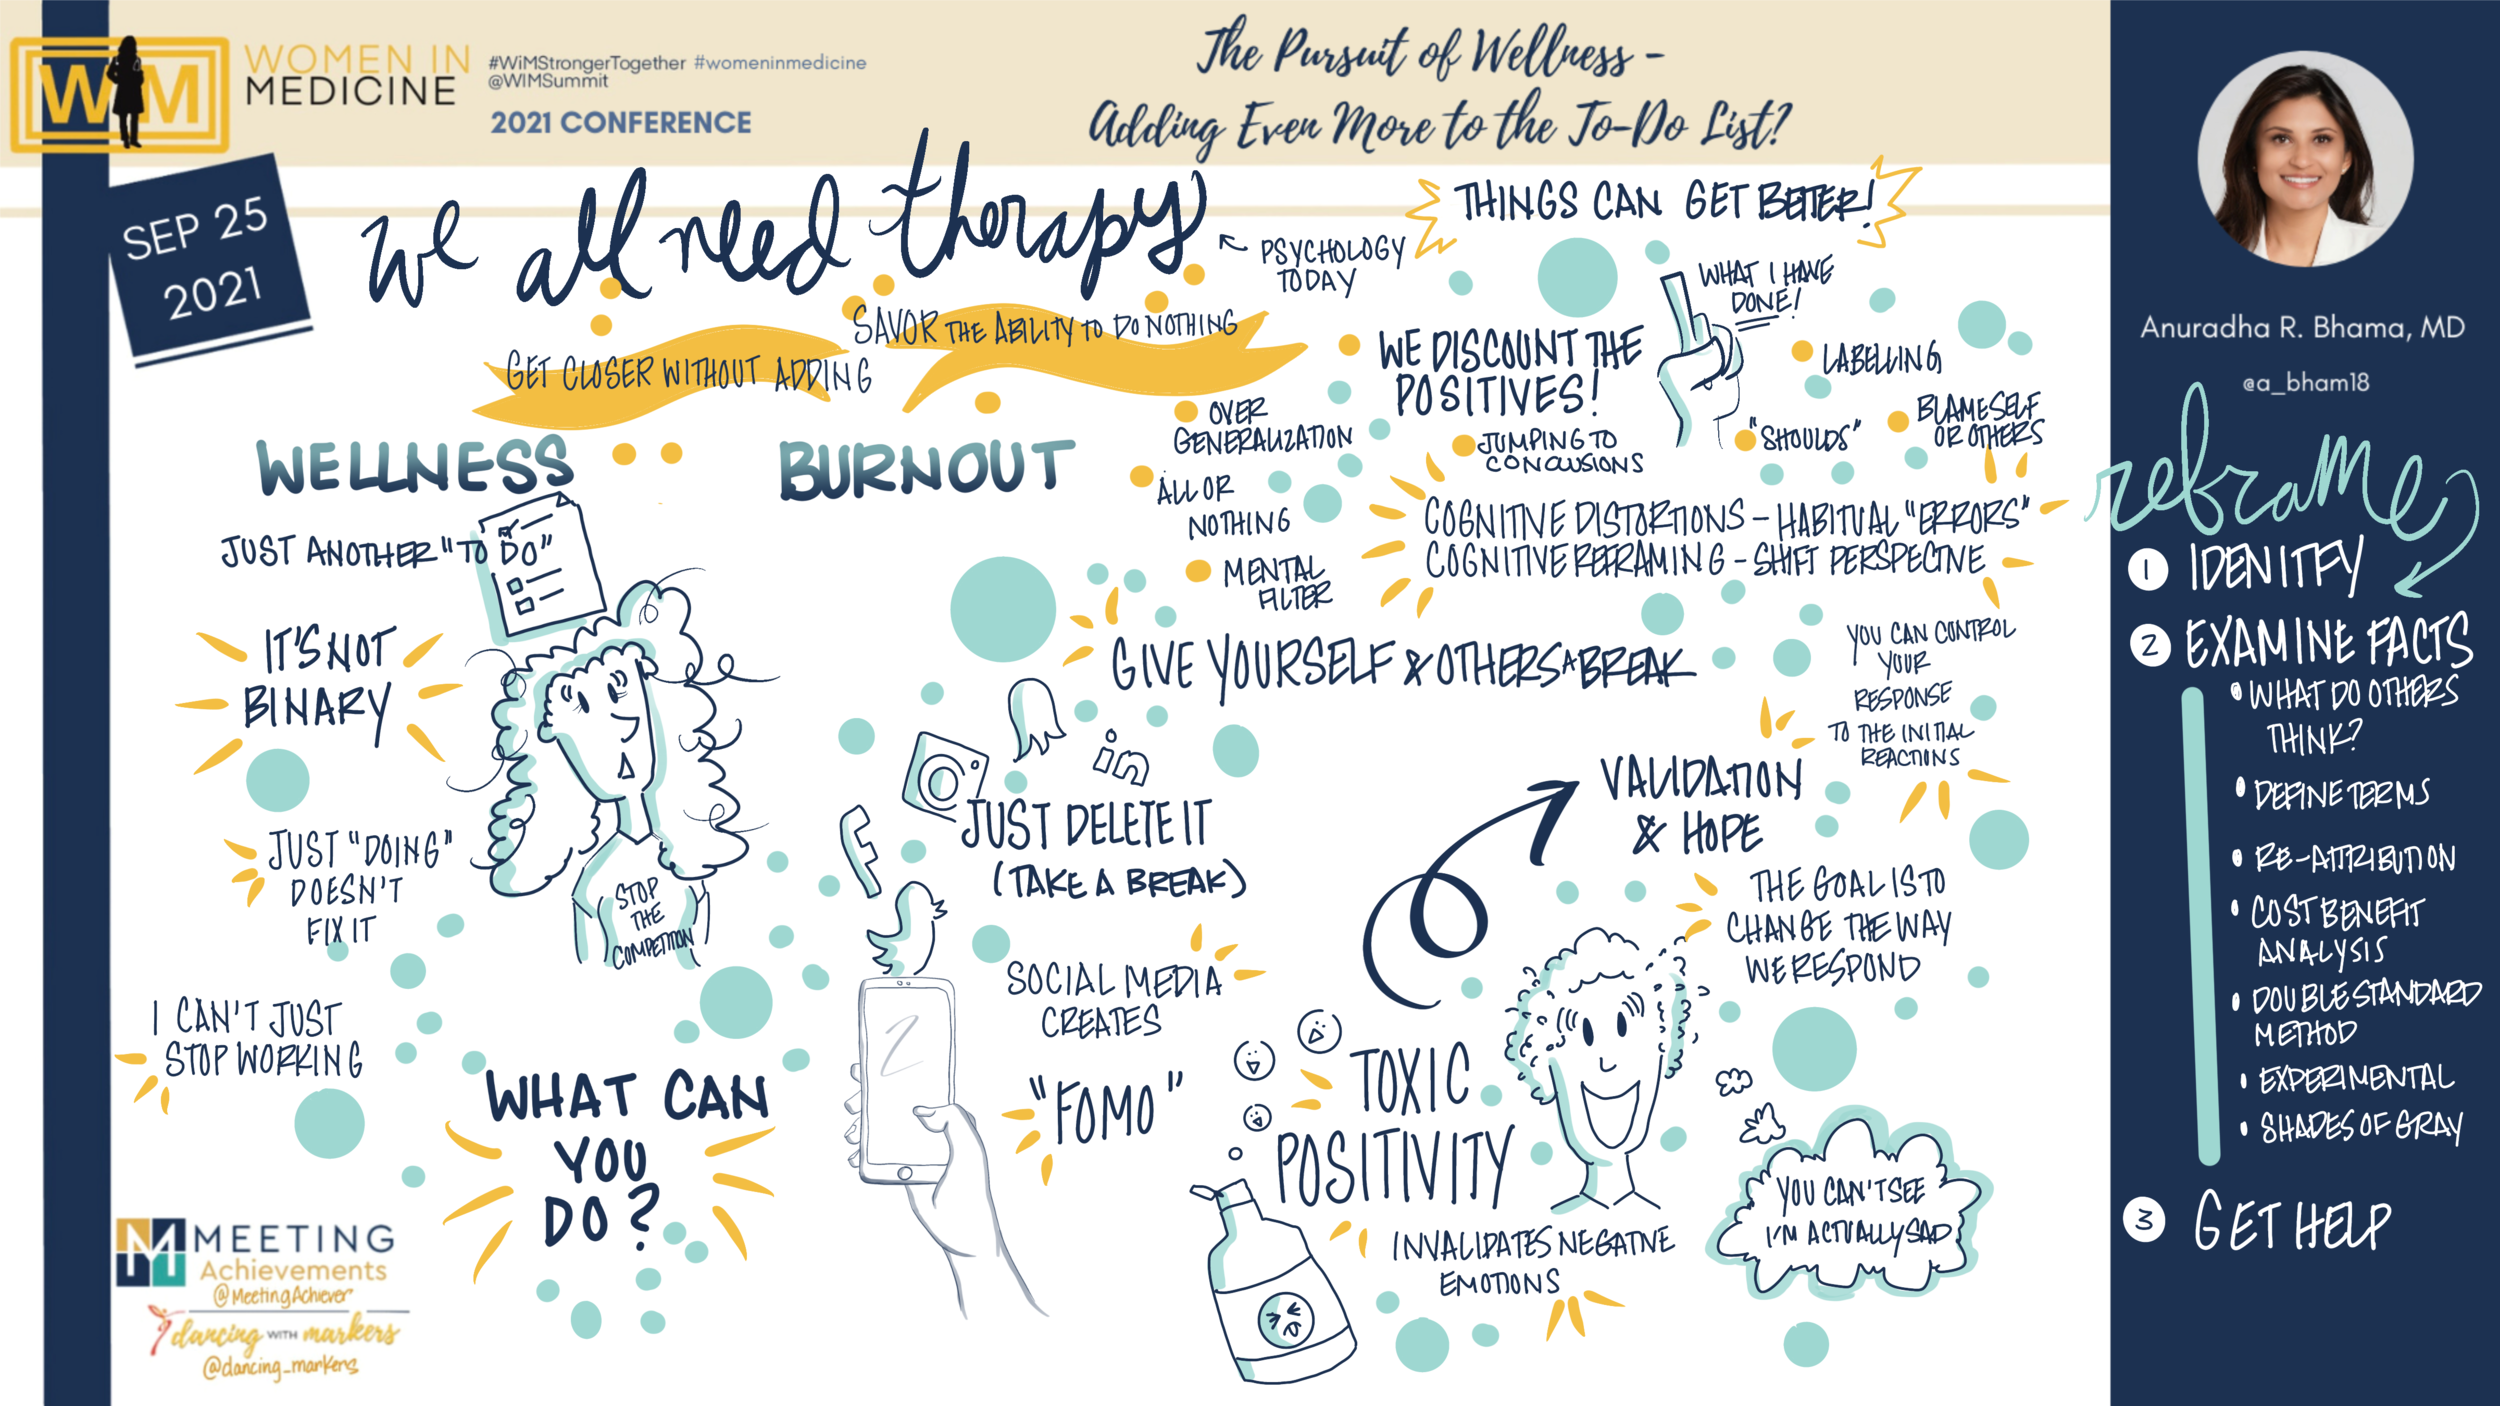 WM
WOMEN IN
MEDICINE
#WiMStrongerTogether #womeninmedicine
@WIMSummit
2021 CONFERENCE
The Pursuit of Wellness -
Adding Even More to the To-Do List?
SEP 25
2021
we all need therapy
PSYCHOLOGY
TODAY
THINGS CAN GET BETTER!
GET CLOSER WITHOUT ADDING
SAVOR THE ABILITY TO DO NOTHING
WELLNESS
BURNOUT
JUST ANOTHER "TO DO"
IT'S NOT
BINARY
JUST "DOING"
DOESN'T
FIX IT
I CAN'T JUST
STOP WORKING
STOP
THE
COMPETITION
WHAT CAN
YOU
DO?
WHAT I HAVE
DONE!
WE DISCOUNT THE
POSITIVES!
LABELLING
OVER
GENERALIZATION
JUMPING TO
CONCLUSIONS
"SHOULDS"
BLAME SELF
OR OTHERS
ALL OR
NOTHING
MENTAL
FILTER
COGNITIVE DISTORTIONS - HABITUAL "ERRORS"
COGNITIVE REFRAMING - SHIFT PERSPECTIVE
GIVE YOURSELF & OTHERS A BREAK
in
JUST DELETE IT
(TAKE A BREAK)
SOCIAL MEDIA
CREATES
"FOMO"
YOU CAN CONTROL
YOUR
RESPONSE
TO THE INITIAL
REACTIONS
VALIDATION
& HOPE
THE GOAL IS TO
CHANGE THE WAY
WE RESPOND
TOXIC
POSITIVITY
INVALIDATES NEGATIVE
EMOTIONS
YOU CAN'T SEE
I'M ACTUALLY SAD
Anuradha R. Bhama, MD
@a_bham18
reframe
1 IDENITFY
2 EXAMINE FACTS
• WHAT DO OTHERS
THINK?
• DEFINE TERMS
• RE-ATTRIBUTION
• COST BENEFIT
ANALYSIS
• DOUBLE STANDARD
METHOD
• EXPERIMENTAL
• SHADES OF GRAY
3 GET HELP
M MEETING
Achievements
@MeetingAchiever
dancing WITH markers
@dancing_markers